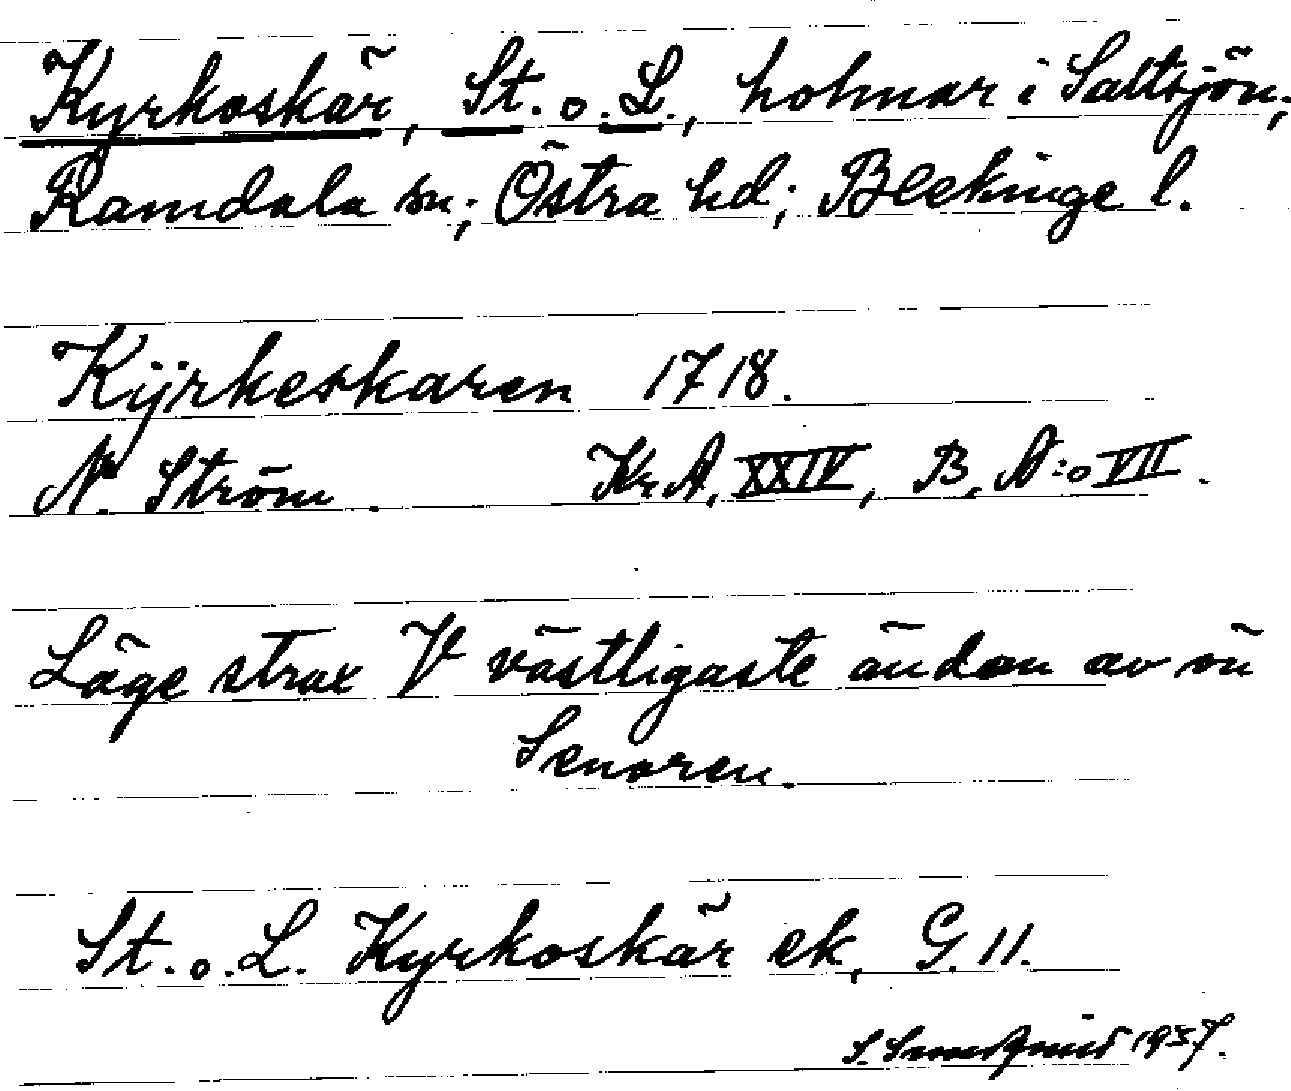 Kyrkoskär, St. o. L., holmar i Saltsjön;
Ramdala sn; Östra hd; Blekinge l.
Kÿrkeskaren 1718.
N. Ström. Kr.A. XXIV, B. N:o VII.
Läge strax V västligaste ändan av ön
Senoren.
St. o. L. Kyrkoskär ek, G. 11.
S. 1937.